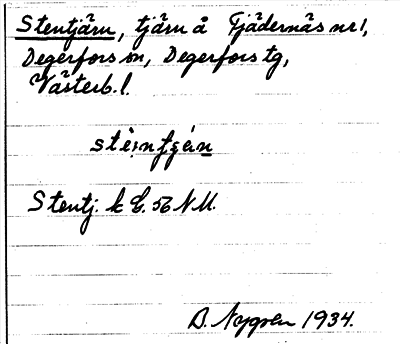 Stentjärn, tjärn å Fjädernäs nr 1,
Degerfors sn, Degerfors tg,
Västerb. l.
Stentj. k G. 56 N.M.
D. Nygren 1934.